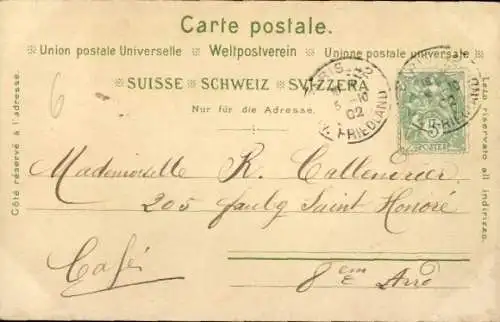 Carte postale.
Union postale Universelle Weltpostverein Unione postale universale
SUISSE SCHWEIZ SVIZZERA
Nur für die Adresse.
Côté réservé à l'adresse.
Lato riservato all indirizzo.
PARIS-42
5 -10
02
AV. FRIEDLAND
5
POSTES
6
Mademoiselle R. Callendrier
205 faubg Saint Honoré
Café
8em Arrd